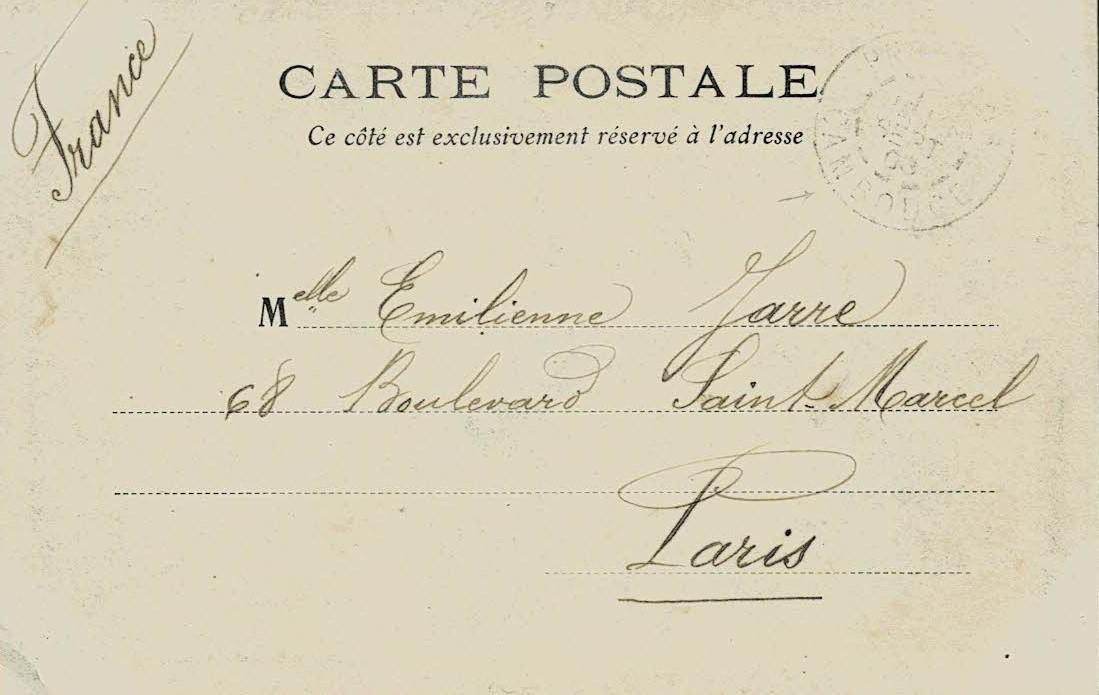 France
CARTE POSTALE
Ce côté est exclusivement réservé à l'adresse
Melle Emilienne Jarre
68 Boulevard Saint-Marcel
Paris